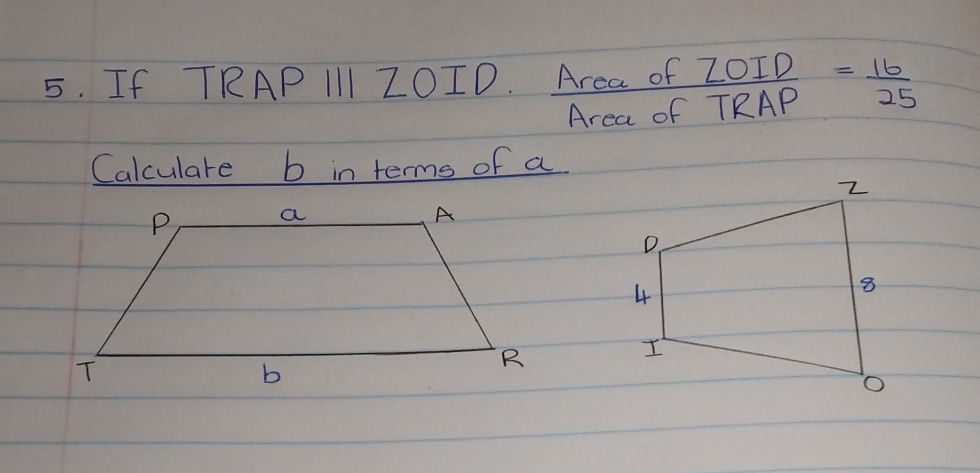 5. If TRAP ||| ZOID. Area of ZOID = 16
Area of TRAP 25
Calculate b in terms of a
Z
P a A
D
4 8
I
T b R
O